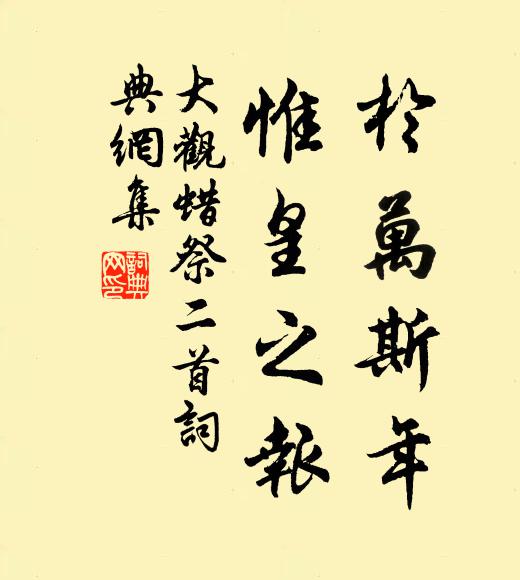 於萬斯年
惟皇之報
大觀蜡祭二首詞
典網集
詞典網印